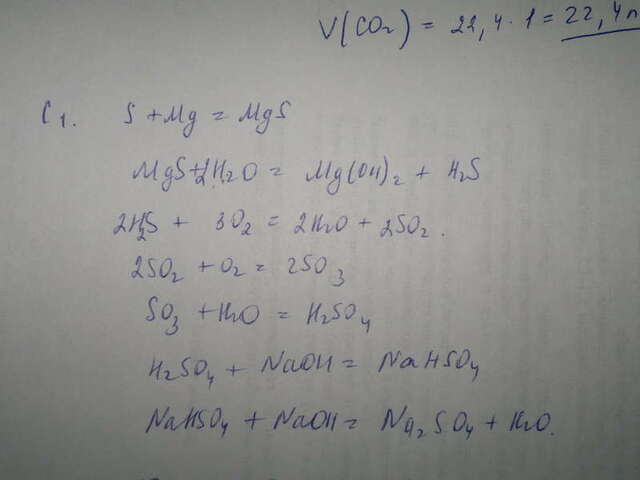 V(CO₂) = 22,4 · 1 = 22,4 л
C1. S + Mg = MgS
MgS + 2H₂O = Mg(OH)₂ + H₂S
2H₂S + 3O₂ = 2H₂O + 2SO₂.
2SO₂ + O₂ = 2SO₃
SO₃ + H₂O = H₂SO₄
H₂SO₄ + NaOH = NaHSO₄
NaHSO₄ + NaOH = Na₂SO₄ + H₂O.